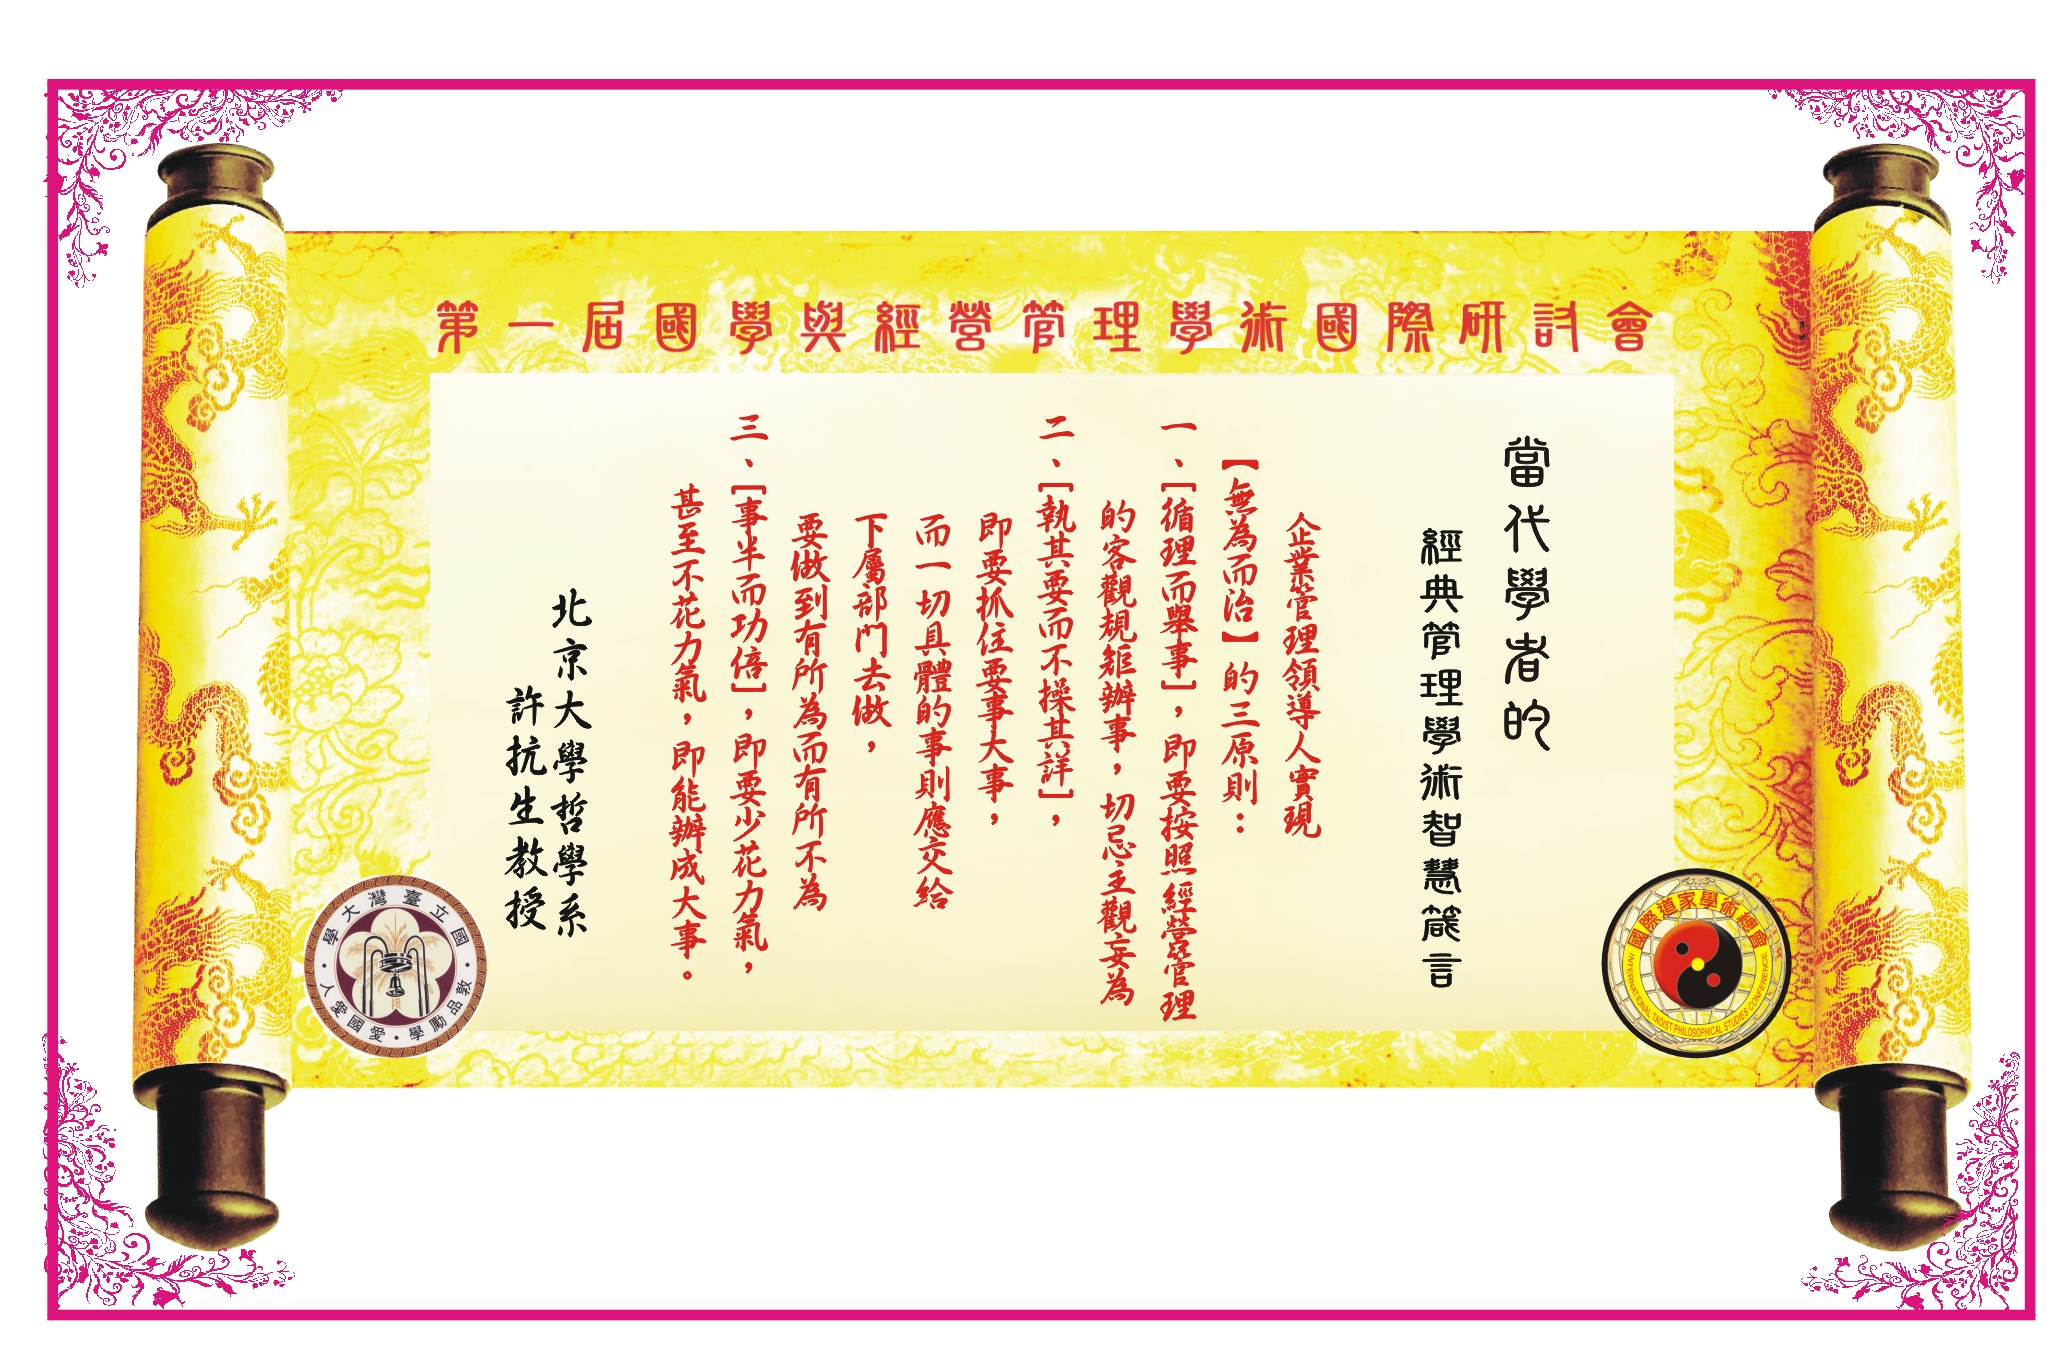 第一屆國學與經營管理學術國際研討會
當代學者的
經典管理學術智慧箴言
企業管理領導人實現
【無為而治】的三原則：
一、[循理而舉事]，即要按照經營管理
的客觀規矩辦事，切忌主觀妄為
二、[執其要而不操其詳]，
即要抓住要事大事，
而一切具體的事則應交給
下屬部門去做，
要做到有所為而有所不為
三、[事半而功倍]，即要少花力氣，
甚至不花力氣，即能辦成大事。
北京大學哲學系
許抗生教授
國際道家學術總會
INTERNATIONAL TAOIST PHILOSOPHICAL STUDIES CONFERENCE
國立臺灣大學
敦品勵學・愛國愛人